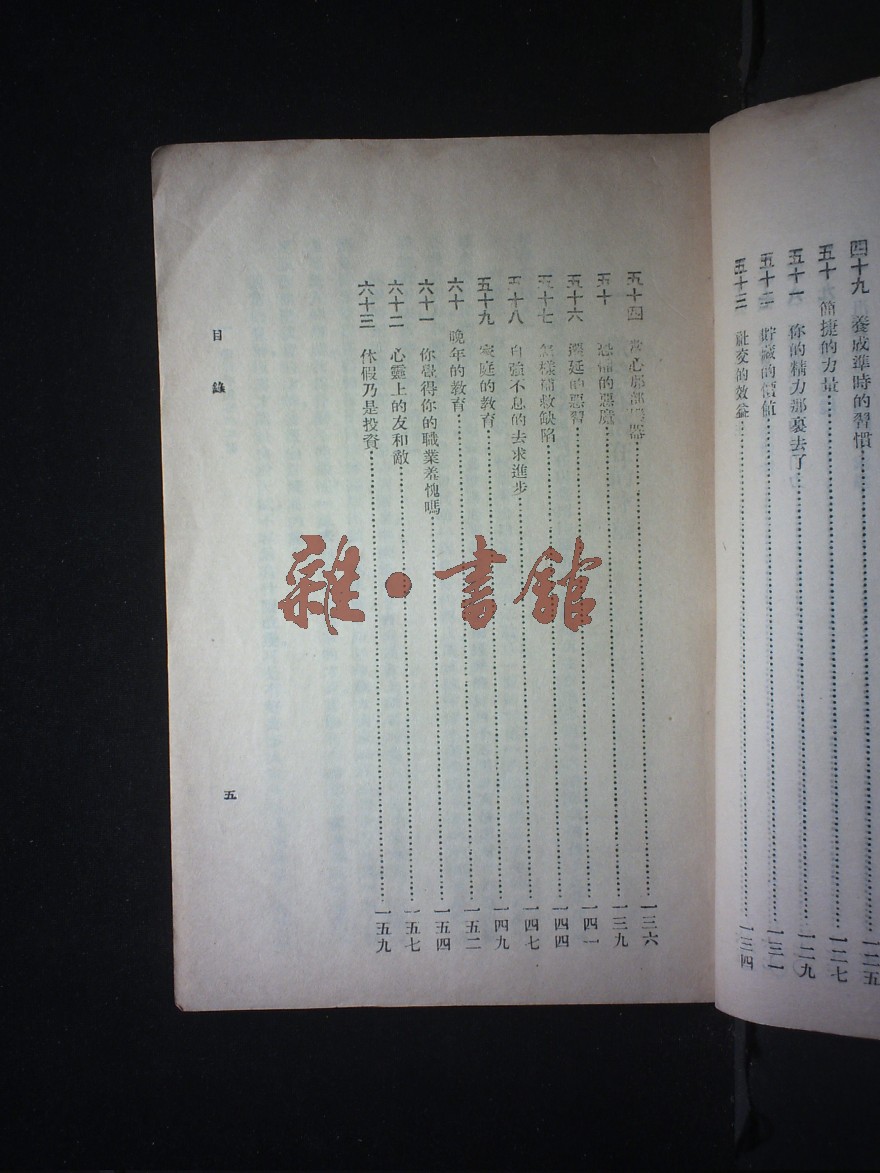 四十九 養成準時的習慣……一二五
五十 簡捷的力量……一二七
五十一 你的精力那裏去了……一二九
五十二 貯藏的價值……一三一
五十三 社交的效益……一三四
五十四 當心那部機器……一三六
五十 恐怖的惡魔……一三九
五十六 遲延的惡習……一四一
五十七 怎樣補救缺陷……一四四
五十八 自強不息的去求進步……一四七
五十九 家庭的教育……一四九
六十 晚年的教育……一五二
六十一 你覺得你的職業羞愧嗎……一五四
六十二 心靈上的友和敵……一五七
六十三 休假乃是投資……一五九
目錄
五
雜·書館